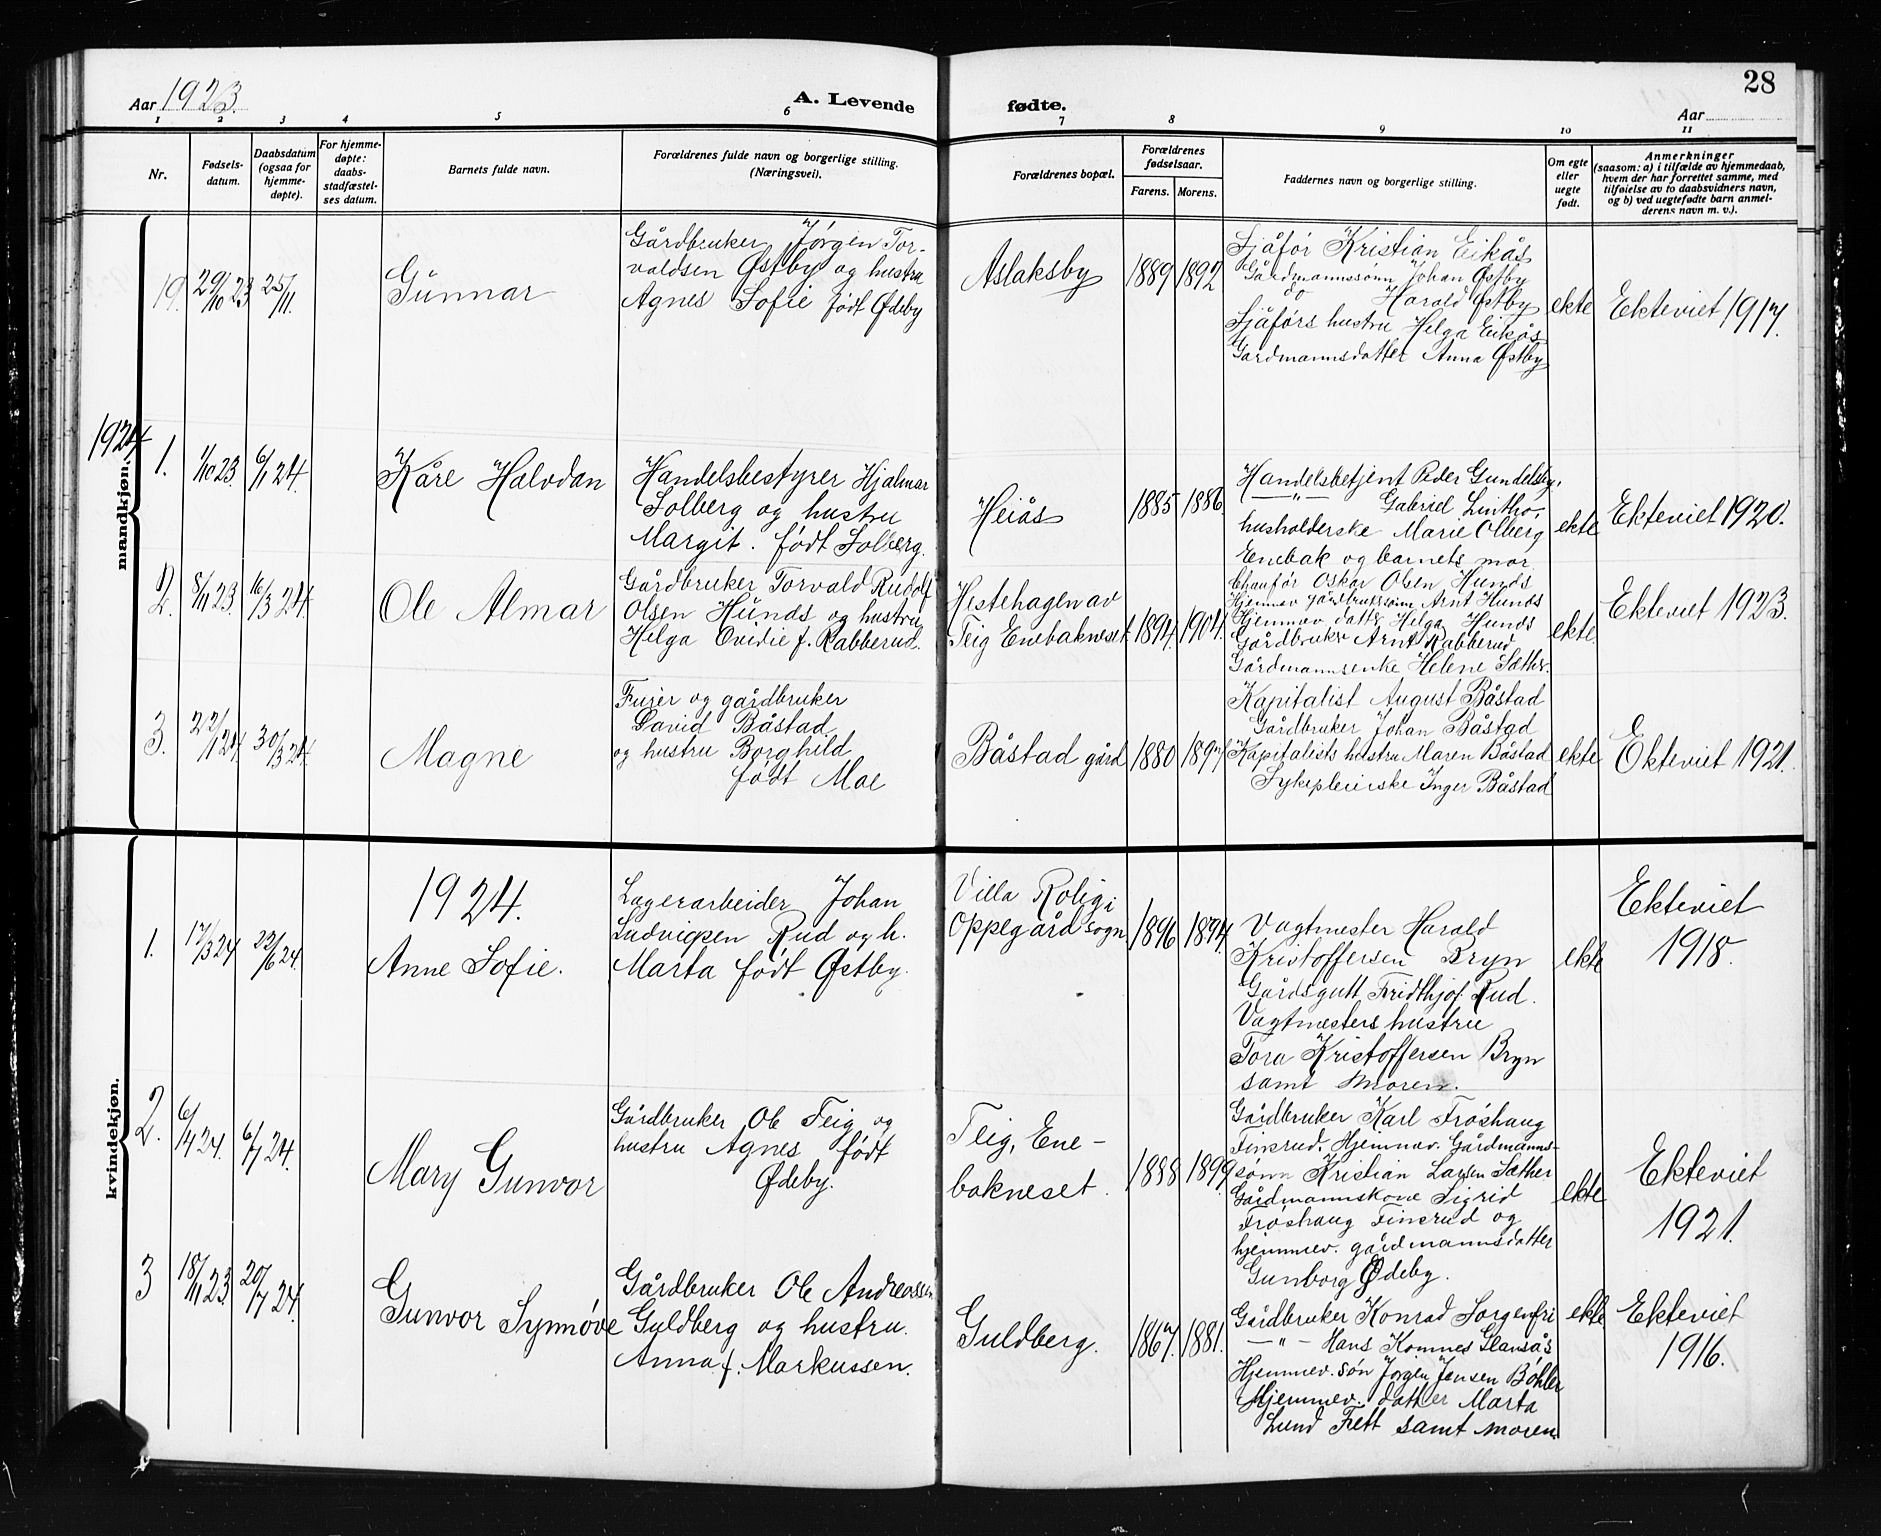 28
Aar 1923.
A. Levende
fødte.
Aar
1 2 3 4 5 6 7 8 9 10 11
Nr.
Fødsels-
datum.
Daabsdatum
(ogsaa for
hjemme-
døpte).
For hjemme-
døpte:
daabs-
stadfæstel-
ses datum.
Barnets fulde navn.
Forældrenes fulde navn og borgerlige stilling.
(Næringsvei).
Forældrenes bopæl.
Forældrenes
fødselsaar.
Farens. Morens.
Faddernes navn og borgerlige stilling.
Om egte
eller
uegte
født.
Anmerkninger
(saasom: a) i tilfælde av hjemmedaab,
hvem der har forrettet samme, med
tilføielse av to daabsvidners navn,
og b) ved uegtefødte barn anmel-
derens navn m. v.).
mandkjøn.
19. 29/10 23 25/11.
Gunnar
Gårdbruker Jørgen Tor-
valdsen Østby og hustru
Agnes Sofie født Ødeby
Aslaksby
1889 1892
Sjåfør Kristian Eikås
Gårdmannssønn Johan Østby
do Harald Østby
Sjåførs hustru Helga Eikås
Gardmannsdatter Anna Østby
ekte
Ekteviet 1917.
1924
1. 1/10 23. 6/1 24.
Kåre Halvdan
Handelsbestyrer Hjalmar
Solberg og hustru
Margit. født Solberg.
Heiås
1885 1886.
Handelsbetjent Peder Gundelsby.
—"— Gabriel Lintho,
husholderske Marie Olberg
Enebak og barnets mor.
ekte
Ekteviet 1920.
2. 8/11 23. 16/3 24.
Ole Almar
Gårdbruker Torvald Rudolf
Olsen Hunds og hustru
Helga Ovidie f. Rabberud.
Hestehagen av
Teig Enebakneset.
1894. 1904.
Chaufør Oskar Olsen Hunds
Hjemmev gårdbrukssønn Arnt Hunds
Hjemmev datter Helga Hunds
Gårdbruker Arnt Rabberud
Gårdmannsenke Helene Sæther.
ekte.
Ekteviet 1923.
3. 22/1 24. 30/3 24.
Magne
Furer og gårdbruker
David Båstad
og hustru Borghild
født Moe
Båstad gård
1880 1897
Kapitalist August Båstad
Gårdbruker Johan Båstad
Kapitalists hustru Maren Båstad
Sykepleierske Inger Båstad
ekte
Ekteviet 1921.
kvindekjøn.
1924.
1. 17/3 24 22/6 24.
Anne Sofie.
Lagerarbeider Johan
Ludvigsen Rud og h.
Marta født Østby.
Villa Rolig i
Oppegård sogn
1896 1894
Vagtmester Harald
Kristoffersen Bryn
Gårdsgutt Fridthjof Rud.
Vagtmesters hustru
Tora Kristoffersen Bryn
samt moren.
ekte
Ekteviet
1918.
2. 6/4 24. 6/7 24.
Mary Gunvor
Gårdbruker Ole Teig og
hustru Agnes født
Ødeby.
Teig, Ene-
bakneset.
1888 1899
Gårdbruker Karl Frøshaug
Finsrud. Hjemmev. Gårdmanns-
sønn Kristian Larsen Sæther
Gårdmannskone Sigrid
Frøshaug Finsrud og
hjemmev. gårdmannsdatter
Gunborg Ødeby.
ekte
Ekteviet
1921.
3 18/11 23. 20/7 24.
Gunvor Synnøve
Gårdbruker Ole Andreassen
Guldberg og hustru.
Anna f. Markussen.
Guldberg.
1867. 1881.
Gårdbruker Konrad Sorgenfri
—"— Hans Glansås
Hjemmev. søn Jørgen Jensen Bøhler
Hjemmev. datter Marta
Lund Tett samt moren.
ekte
Ekteviet
1916.